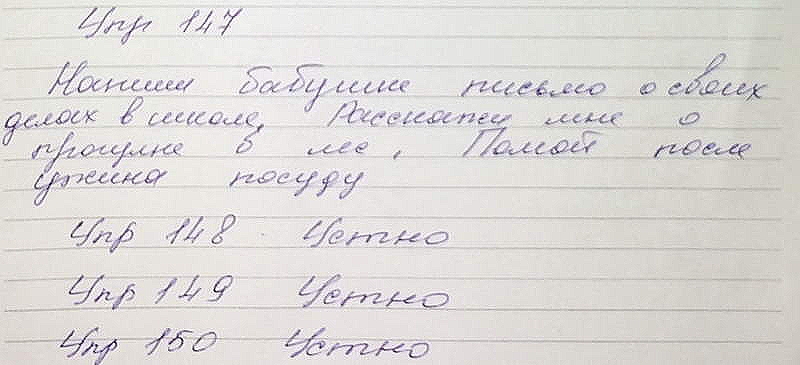 Упр 147
Напиши бабушке письмо о своих
делах в школе. Расскажи мне о
прогулке в лес. Помой после
ужина посуду
Упр 148 Устно
Упр 149 Устно
Упр 150 Устно